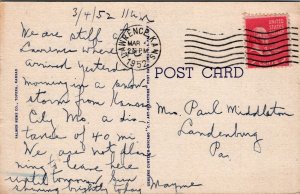 3/4/52 11 a.m.
We are still at
Lawrence where
arrived yesterday
morning in a snow
storm from Kansas
City Mo. a dis-
tance of 40 mi
We are not
leave here
until tomorrow. Sun
shining brightly today
Mayme
LAWRENCE, KANS.
MAR
1952
POST CARD
Mrs. Paul Middleton
Landenburg
Pa.